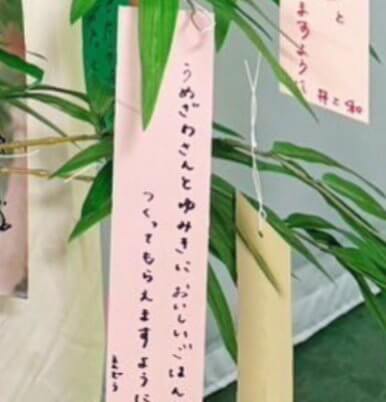 うめざわさんとゆみきに おいしいごはん
つくってもらえますように
まどう
と
ますように